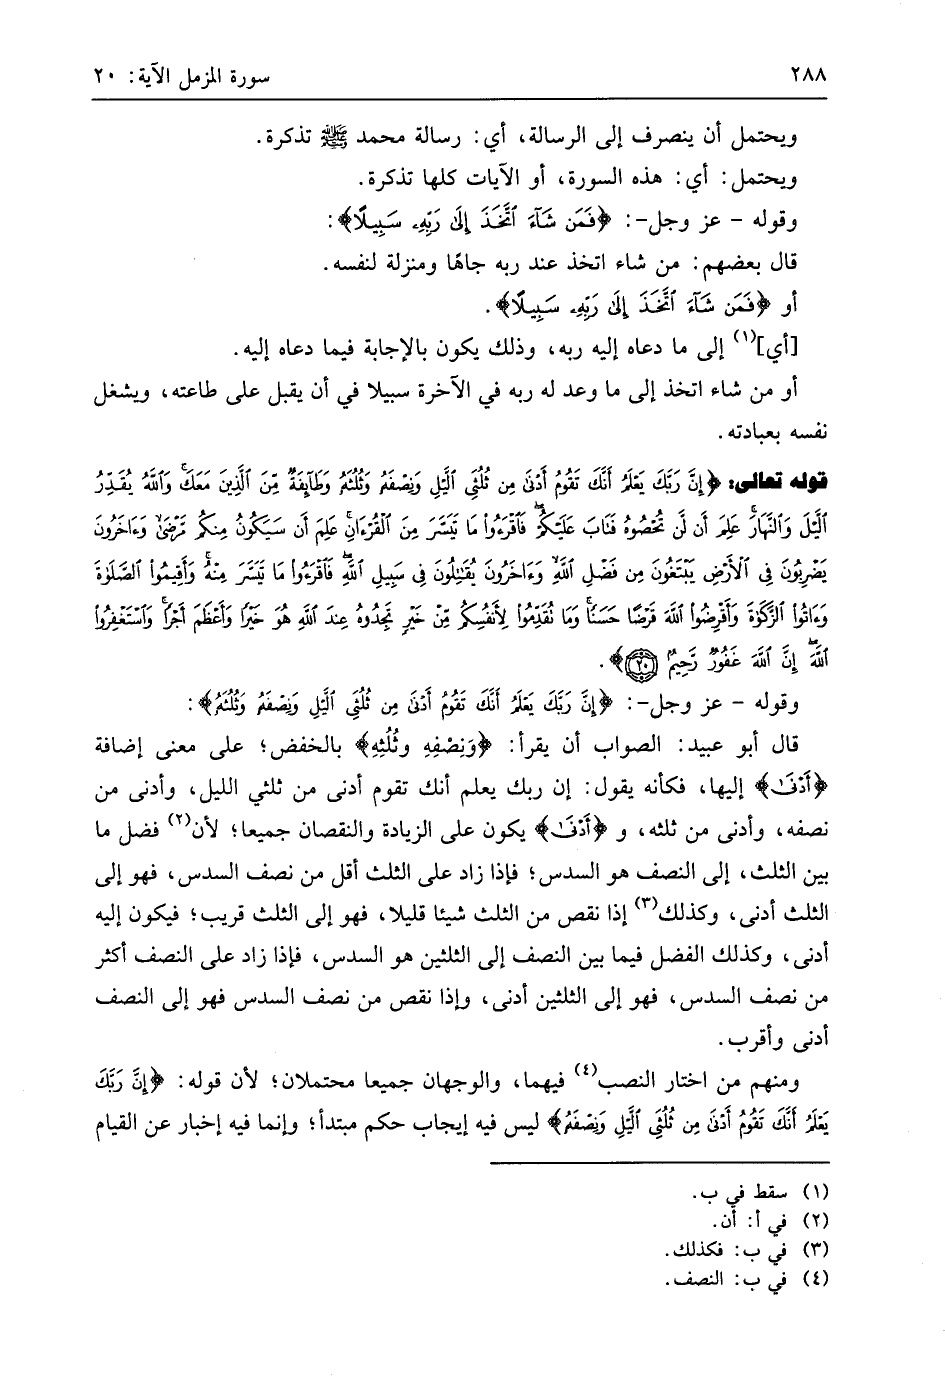 ٢٨٨ سورة المزمل الآية: ٢٠
ويحتمل أن ينصرف إلى الرسالة، أي: رسالة محمد ﷺ تذكرة.
ويحتمل: أي: هذه السورة، أو الآيات كلها تذكرة.
وقوله - عز وجل-: ﴿فَمَن شَآءَ ٱتَّخَذَ إِلَىٰ رَبِّهِۦ سَبِيلًا﴾:
قال بعضهم: من شاء اتخذ عند ربه جاهًا ومنزلة لنفسه.
أو ﴿فَمَن شَآءَ ٱتَّخَذَ إِلَىٰ رَبِّهِۦ سَبِيلًا﴾.
[أي](١) إلى ما دعاه إليه ربه، وذلك يكون بالإجابة فيما دعاه إليه.
أو من شاء اتخذ إلى ما وعد له ربه في الآخرة سبيلا في أن يقبل على طاعته، ويشغل
نفسه بعبادته.
قوله تعالى: ﴿إِنَّ رَبَّكَ يَعْلَمُ أَنَّكَ تَقُومُ أَدْنَىٰ مِن ثُلُثَىِ ٱلَّيْلِ وَنِصْفَهُۥ وَثُلُثَهُۥ وَطَآئِفَةٌ مِّنَ ٱلَّذِينَ مَعَكَۚ وَٱللَّهُ يُقَدِّرُ
ٱلَّيْلَ وَٱلنَّهَارَۚ عَلِمَ أَن لَّن تُحْصُوهُ فَتَابَ عَلَيْكُمْۖ فَٱقْرَءُوا۟ مَا تَيَسَّرَ مِنَ ٱلْقُرْءَانِۚ عَلِمَ أَن سَيَكُونُ مِنكُم مَّرْضَىٰۙ وَءَاخَرُونَ
يَضْرِبُونَ فِى ٱلْأَرْضِ يَبْتَغُونَ مِن فَضْلِ ٱللَّهِۙ وَءَاخَرُونَ يُقَٰتِلُونَ فِى سَبِيلِ ٱللَّهِۖ فَٱقْرَءُوا۟ مَا تَيَسَّرَ مِنْهُۚ وَأَقِيمُوا۟ ٱلصَّلَوٰةَ
وَءَاتُوا۟ ٱلزَّكَوٰةَ وَأَقْرِضُوا۟ ٱللَّهَ قَرْضًا حَسَنًاۚ وَمَا تُقَدِّمُوا۟ لِأَنفُسِكُم مِّنْ خَيْرٍ تَجِدُوهُ عِندَ ٱللَّهِ هُوَ خَيْرًا وَأَعْظَمَ أَجْرًاۚ وَٱسْتَغْفِرُوا۟
ٱللَّهَۖ إِنَّ ٱللَّهَ غَفُورٌ رَّحِيمٌۢ ٢٠﴾.
وقوله - عز وجل-: ﴿إِنَّ رَبَّكَ يَعْلَمُ أَنَّكَ تَقُومُ أَدْنَىٰ مِن ثُلُثَىِ ٱلَّيْلِ وَنِصْفَهُۥ وَثُلُثَهُۥ﴾:
قال أبو عبيد: الصواب أن يقرأ: ﴿وَنِصْفِهِ وثُلُثِهِ﴾ بالخفض؛ على معنى إضافة
﴿أَدْنَىٰ﴾ إليها، فكأنه يقول: إن ربك يعلم أنك تقوم أدنى من ثلثي الليل، وأدنى من
نصفه، وأدنى من ثلثه، و ﴿أَدْنَىٰ﴾ يكون على الزيادة والنقصان جميعا؛ لأن(٢) فضل ما
بين الثلث، إلى النصف هو السدس؛ فإذا زاد على الثلث أقل من نصف السدس، فهو إلى
الثلث أدنى، وكذلك(٣) إذا نقص من الثلث شيئا قليلا، فهو إلى الثلث قريب؛ فيكون إليه
أدنى، وكذلك الفضل فيما بين النصف إلى الثلثين هو السدس، فإذا زاد على النصف أكثر
من نصف السدس، فهو إلى الثلثين أدنى، وإذا نقص من نصف السدس فهو إلى النصف
أدنى وأقرب.
ومنهم من اختار النصب(٤) فيهما، والوجهان جميعا محتملان؛ لأن قوله: ﴿إِنَّ رَبَّكَ
يَعْلَمُ أَنَّكَ تَقُومُ أَدْنَىٰ مِن ثُلُثَىِ ٱلَّيْلِ وَنِصْفَهُۥ﴾ ليس فيه إيجاب حكم مبتدأ؛ وإنما فيه إخبار عن القيام
(١) سقط في ب.
(٢) في أ: أن.
(٣) في ب: فكذلك.
(٤) في ب: النصف.